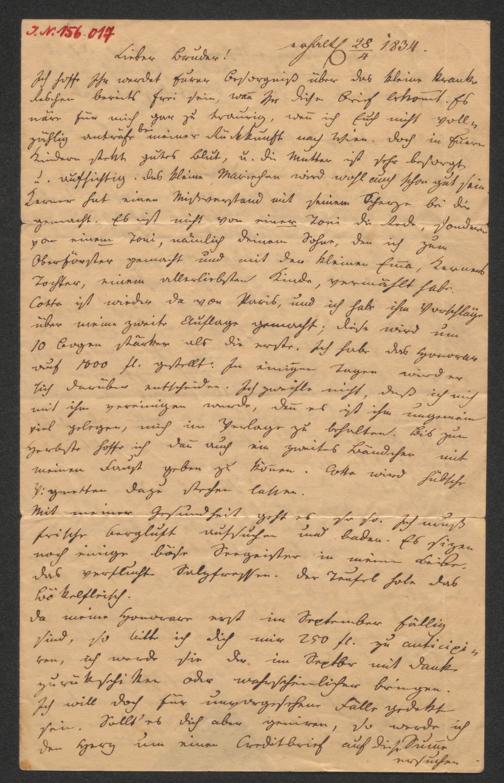 J.N. 156.017
erhalten 28/4 1834.
Lieber Bruder!
Ich hoffe Ihr werdet Eurer Besorgniß über das kleine Kranke
bereits frei sein, wenn Ihr diesen Brief bekommt. Es
wäre für mich gar zu traurig, wenn ich Euch nicht voll-
zählig anträfe bei meiner Rückkunft nach Wien. Doch in Euern
Kindern steckt gutes Blut, u. die Mutter ist sehr besorgt
u. aufsichtig. Das kleine Mariechen wird wohl auch schon gut sein
Kerner hat einen Mißverstand mit seinem Scherze bei dir
gemacht. Es ist nicht von einer Toni die Rede, sondern
von einem Toni, nämlich deinem Sohne, den ich zum
Oberförster gemacht und mit der kleinen Emma, Kerners
Tochter, einem allerliebsten Kinde, vermählt habe.
Cotta ist wieder da von Paris, und ich habe ihm Vorschläge
über meine zweite Auflage gemacht; diese wird um
10 Bogen stärker als die erste. Ich habe das Honorar
auf 1000 fl. gestellt. In einigen Tagen wird er
sich darüber entscheiden. Ich zweifle nicht, daß ich mich
mit ihm vereinigen werde, denn es ist ihm ungemein
viel gelegen, mich im Verlage zu behalten. Bis zum
Herbste hoffe ich dann auch ein zweites Bändchen mit
meinem Faust geben zu können. Cotta wird hübsche
Vignetten dazu stechen lassen.
Mit meiner Gesundheit geht es so so. Ich muß
frische Bergluft aufsuchen und baden. Es sizen
noch einige böse Seegeister in meinem Leibe.
Das verfluchte Salzfressen. Der Teufel hole das
Bökelfleisch.
Da meine Honorare erst im September fällig
sind, so bitte ich dich mir 250 fl. zu anticipi-
ren, ich werde sie dir im Septber mit Dank
zurükschiken oder wahrscheinlicher bringen.
Ich will doch für unvorgesehene Fälle gedekt
sein. Sollt' es dich aber geniren, so werde ich
den Herz um einen Creditbrief auf diese Summe
ersuchen